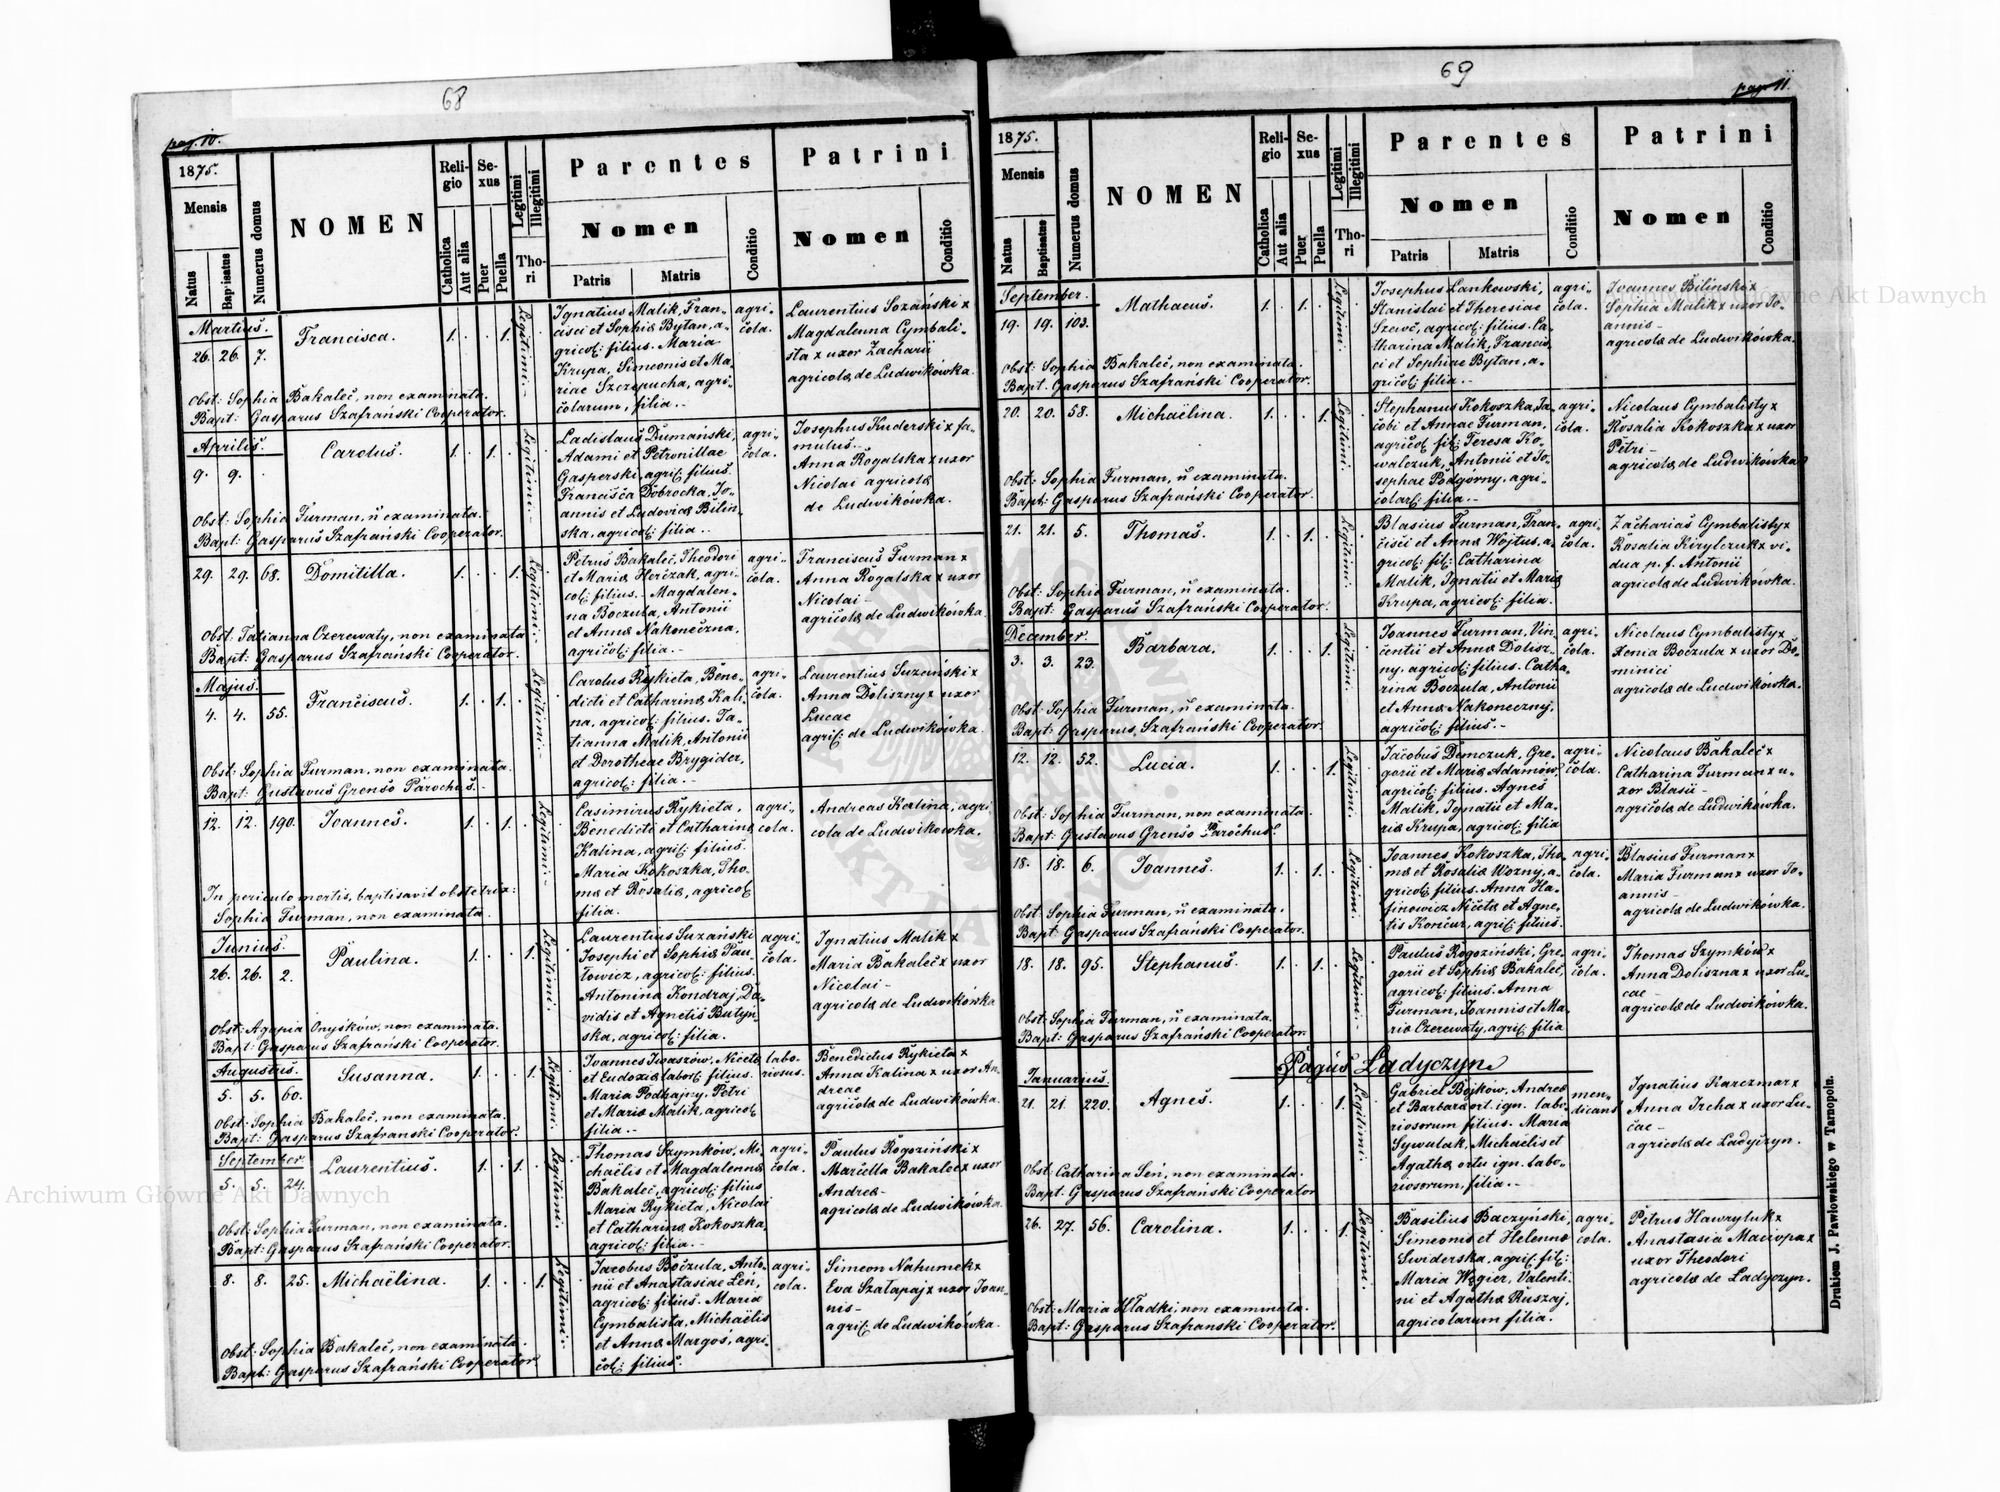 68
pag. 10.
1875.
Mensis
Natus
Baptisatus
Numerus domus
NOMEN
Religio
Catholica
Aut alia
Sexus
Puer
Puella
Legitimi
Illegitimi
Thori
Parentes
Nomen
Patris
Matris
Conditio
Patrini
Nomen
Conditio
Martius.
26. 26. 7. Francisca. 1. 1. Legitimi
Ignatius Malik, Fran-
cisci et Sophiæ Bytan, a-
gricol: filius. Maria
Krupa, Simeonis et Ma-
riae Szczepucha, agri-
colarum, filia.
agri-
cola.
Laurentius Sozański x
Magdalenna Cymbali-
sta x uxor Zacharii
agricolæ de Ludwikówka.
Obst: Sophia Bakaleć, non examinata.
Bapt: Gasparus Szafrański Cooperator.
Aprilis.
9. 9. Carolus. 1. 1. Legitimi
Ladislaus Dumański,
Adami et Petronillae
Gasperski, agric: filius.
Francisca Dobrocka, Jo-
annis et Ludovicæ Bilin-
ska, agricol: filia.
agri-
cola.
Josephus Kuderski x fa-
mulus.
Anna Rogalska x uxor
Nicolai agricolæ
de Ludwikówka.
Obst: Sophia Furman, ñ examinata.
Bapt: Gasparus Szafrański Cooperator.
29. 29. 68. Domitilla. 1. 1. Legitimi
Petrus Bakaleć, Theodori
et Mariæ Herczak, agri-
col: filius. Magdalen-
na Boczula, Antonii
et Annæ Nakoneczna,
agricol: filia.
agri-
cola.
Franciscus Furman x
Anna Rogalska x uxor
Nicolai
agricolæ de Ludwikówka.
Obst: Tatianna Czerewaty, non examinata
Bapt: Gasparus Szafrański Cooperator.
Majus.
4. 4. 55. Franciscus. 1. 1. Legitimi
Carolus Rykieta, Bene-
dicti et Catharinæ Kali-
na, agricol: filius. Ta-
tianna Malik, Antonii
et Dorotheae Brygider,
agricol: filia.
agri-
cola.
Laurentius Suzański x
Anna Doliszny x uxor
Lucae
agric: de Ludwikówka
Obst: Sophia Furman, non examinata.
Bapt: Gustavus Grenso Parochus.
12. 12. 190. Joannes. 1. 1. Legitimi
Casimirus Rykieta,
Benedicti et Catharinæ
Kalina, agric: filius.
Maria Kokoszka, Tho-
mæ et Rosaliæ, agricol
filia.
agri-
cola.
Andreas Kalina, agri-
cola de Ludwikówka.
In periculo mortis, baptisavit obstetrix:
Sophia Furman, non examinata.
Junius.
26. 26. 2. Paulina. 1. 1. Legitimi
Laurentius Suzański
Josephi et Sophiæ Pau-
łowicz, agricol: filius.
Antonina Kondraj Da-
vidis et Agnetis Butyn-
ska, agricol: filia.
agri-
cola.
Ignatius Malik x
Maria Bakaleć x uxor
Nicolai
agricolæ de Ludwikówka
Obst: Agapia Onyśków, non examinata.
Bapt: Gasparus Szafrański Cooperator.
Augustus.
5. 5. 60. Susanna. 1. 1. Legitimi
Joannes Iwaszów, Nicetæ
et Eudoxiæ labor: filius.
Maria Podhajny, Petri
et Mariæ Malik, agricol
filia.
labo-
riosus.
Benedictus Rykieta x
Anna Kalina x uxor An-
dreae
agricolæ de Ludwikówka.
Obst: Sophia Bakaleć, non examinata.
Bapt: Gasparus Szafranski Cooperator.
September.
5. 5. 24. Laurentius. 1. 1. Legitimi
Thomas Szymków, Mi-
chaëlis et Magdalennæ
Bakaleć, agricol: filius
Maria Rykieta, Nicolai
et Catharinæ Kokoszka,
agricol: filia.
agri-
cola.
Paulus Rogoziński x
Marcella Bakaleć x uxor
Andreæ
agricolæ de Ludwikówka.
Obst: Sophia Furman, non examinata.
Bapt: Gasparus Szafrański Cooperator.
8. 8. 25. Michaëlina. 1. 1. Legitimi
Jacobus Boczula, Anto-
nii et Anastasiae Leń,
agricol: filius. Maria
Cymbalista, Michaëlis
et Annæ Margos, agri-
col: filius.
agri-
cola.
Simeon Nahumek x
Eva Szałapaj x uxor Joan-
nis
agric: de Ludwikówka.
Obst: Sophia Bakaleć, non examinata.
Bapt: Gasparus Szafrański Cooperator
69
pag. 11.
1875.
Mensis
Natus
Baptisatus
Numerus domus
NOMEN
Religio
Catholica
Aut alia
Sexus
Puer
Puella
Legitimi
Illegitimi
Thori
Parentes
Nomen
Patris
Matris
Conditio
Patrini
Nomen
Conditio
September.
19. 19. 103. Mathaeus. 1. 1. Legitimi
Josephus Lankowski,
Stanislai et Theresiae
Szewć, agricol: filius. Ca-
tharina Malik, Francis-
ci et Sophiae Bytan, a-
gricol: filia.
agri-
cola.
Joannes Biliński x
Sophia Malik x uxor Jo-
annis
agricolæ de Ludwikówka.
Obst: Sophia Bakaleć, non examinata.
Bapt: Gasparus Szafrański Cooperator.
20. 20. 58. Michaëlina. 1. 1. Legitimi
Stephanus Kokoszka, Ja-
cobi et Annae Furman,
agricol fil: Teresa Ko-
walczuk, Antonii et Jo-
sephae Podgórny, agri-
colar: filia.
agri-
cola.
Nicolaus Cymbalisty x
Rosalia Kokoszka x uxor
Petri
agricolæ de Ludwikówka
Obst: Sophia Furman, ñ examinata.
Bapt: Gasparus Szafrański Cooperator.
21. 21. 5. Thomas. 1. 1. Legitimi
Blasius Furman, Fran-
cisci et Annæ Wojtus, a-
gricol: fil: Catharina
Malik, Ignatii et Mariæ
Krupa, agricol: filia.
agri-
cola.
Zacharias Cymbalisty x
Rosalia Kirylczuk x vi-
dua p. f. Antonii
agricolæ de Ludwikówka.
Obst: Sophia Furman, ñ examinata.
Bapt: Gasparus Szafrański Cooperator.
December.
3. 3. 23. Barbara. 1. 1. Legitimi
Joannes Furman, Vin-
centii et Annæ Dolisz-
ny, agricol: filius. Catha-
rina Boczula, Antonii
et Annæ Nakoneczny,
agricol: filius.
agri-
cola.
Nicolaus Cymbalisty x
Xenia Boczula x uxor Do-
minici
agricolæ de Ludwikówka.
Obst: Sophia Furman, ñ examinata.
Bapt: Gasparus Szafrański Cooperator.
12. 12. 52. Lucia. 1. 1. Legitimi
Jacobus Demczuk, Gre-
gorii et Mariæ Adamów,
agricol: filius. Agnes
Malik, Ignatii et Ma-
riæ Krupa, agricol: filia
agri-
cola.
Nicolaus Bakaleć x
Catharina Furman x u-
xor Blasii
agricolæ de Ludwikówka.
Obst: Sophia Furman, non examinata.
Bapt: Gustavus Grenso Parochus.
18. 18. 6. Joannes. 1. 1. Legitimi
Joannes Kokoszka, Tho-
mæ et Rosaliæ Wozny, a-
gricol: filius. Anna Ha-
finowicz Nicetæ et Agne-
tis Korcur, agric: filius.
agri-
cola.
Blasius Furman x
Maria Furman x uxor Jo-
annis
agricolæ de Ludwikówka.
Obst: Sophia Furman, ñ examinata.
Bapt: Gasparus Szafrański Cooperator.
18. 18. 95. Stephanus. 1. 1. Legitimi
Paulus Rogoziński, Gre-
gorii et Sophiæ Bakaleć,
agricol: filius. Anna
Furman, Joannis et Ma-
riæ Czerewaty, agric: filia
agri-
cola.
Thomas Szymków x
Anna Doliszna x uxor Lu-
cae
agricolæ de Ludwikówka.
Obst: Sophia Furman, ñ examinata.
Bapt: Gasparus Szafrański Cooperator.
Pagus Ladyczyn
Januarius.
21. 21. 220. Agnes. 1. 1. Legitimi
Gabriel Bojków, Andreæ
et Barbaræ ort. ign. labo-
riosorum filius. Maria
Sywulak, Michaëlis et
Agathæ ortu ign. labo-
riosorum, filia.
men-
dicans
Ignatius Karczmar x
Anna Ircha x uxor Lu-
cae
agricolæ de Ladyczyn.
Obst: Catharina Seń, non examinata.
Bapt: Gasparus Szafrański Cooperator
26. 27. 56. Carolina. 1. 1. Legitimi
Basilius Baczyński,
Simeonis et Helennæ
Swiderska, agric: fil:
Maria Węgier, Valenti-
ni et Agathæ Ruszaj,
agricolarum filia.
agri-
cola.
Petrus Hawryluk x
Anastasia Maciopa x
uxor Theodori
agricolæ de Ladyczyn.
Obst: Maria Hładki, non examinata.
Bapt: Gasparus Szafranski Cooperator.
Drukiem J. Pawłowskiego w Tarnopolu.
Archiwum Główne Akt Dawnych
Archiwum Główne Akt Dawnych